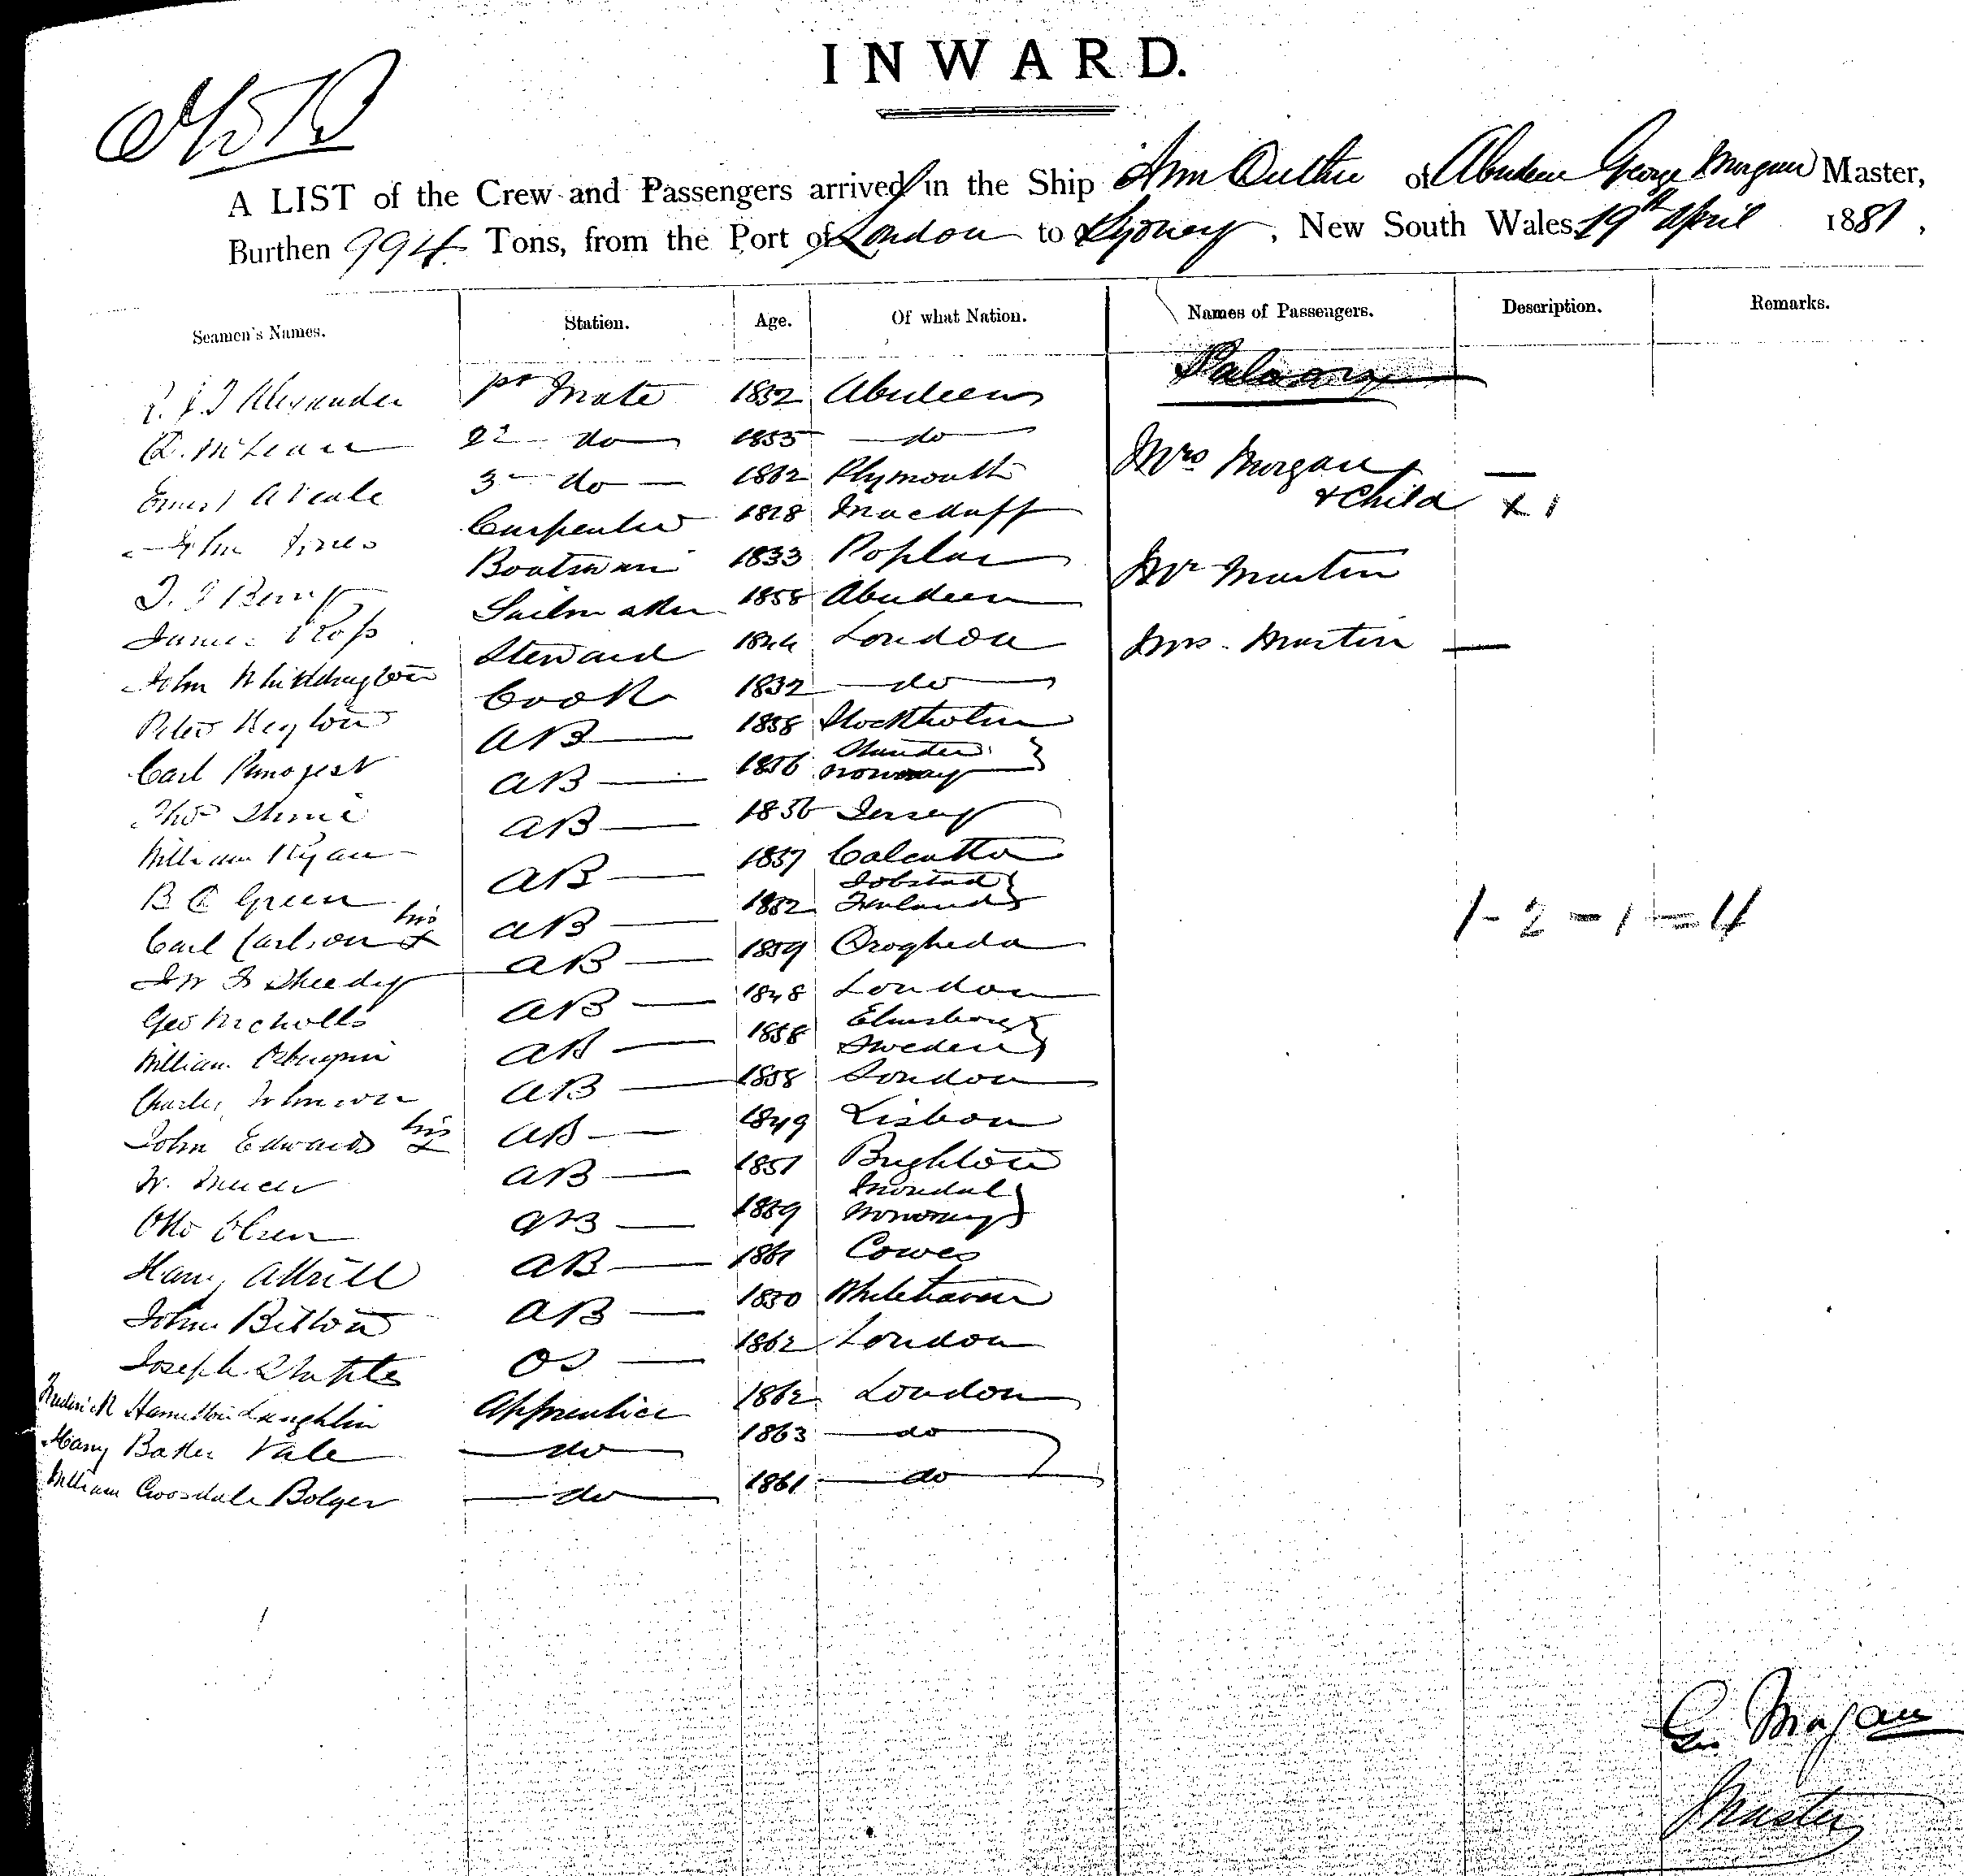 INWARD.
A LIST of the Crew and Passengers arrived in the Ship Ann Duthie of Aberdeen George Morgan Master,
Burthen 994 Tons, from the Port of London to Sydney, New South Wales, 19th April 1881,
Seamen's Names. Station. Age. Of what Nation. Names of Passengers. Description. Remarks.
Saloon
Alexander 1st Mate 1852 Aberdeen
McLean 2d do 1855 do
Mrs Morgan —
Ernest A Veale 3 do 1862 Plymouth
& Child X 1
John Carpenter 1828 Macduff
Boatswain 1833 Poplar
Mr Martin
James Ross Sailmaker 1858 Aberdeen
John Whiddington Steward 1844 London
Mrs. Martin —
Peter Heylow Cook 1832 do
Carl AB 1858 Stockholm
Thos AB 1856 Norway
William Ryan AB 1836 Jersey
B C Green AB 1857 Calcutta
Carl Carlson his x AB 1852
Sheedy AB 1859 Drogheda
1 - 2 - 1 = 4
Geo Nicholls AB 1848 London
William AB 1858 Sweden
Charles Johnson AB 1858 London
John Edwards his x AB 1849 Lisbon
W. AB 1851 Brighton
Otto Olsen AB 1859 Norway
Harry Attrill AB 1861 Cowes
John Bitton AB 1850 Whitehaven
Joseph OS 1862 London
Frederick Hamilton Laughlin Apprentice 1862 London
Harry Baker Vale do 1863 do
William Croosdale Bolger do 1861 do
G. Morgan
Master